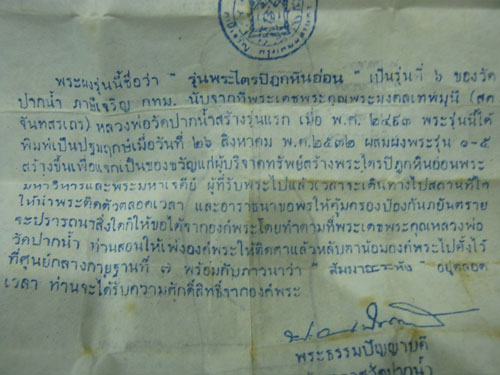 พระผงรุ่นนี้ชื่อว่า " รุ่นพระไตรปิฎกหินอ่อน " เป็นรุ่นที่ ๖ ของวัด
ปากน้ำ ภาษีเจริญ กทม. นับจากที่พระเดชพระคุณพระมงคลเทพมุนี (สด
จันทสระเถร) หลวงพ่อวัดปากน้ำสร้างรุ่นแรก เมื่อ พ.ศ. ๒๔๙๓ พระรุ่นนี้ได้
พิมพ์เป็นปฐมฤกษ์เมื่อวันที่ ๒๖ สิงหาคม พ.ศ.๒๕๓๒ ผสมผงพระรุ่น ๑-๕
สร้างขึ้นเพื่อแจกเป็นของขวัญแก่ผู้บริจาคทรัพย์สร้างพระไตรปิฎกหินอ่อนพระ
มหาวิหารและพระมหาเจดีย์ ผู้ที่รับพระไปแล้วเวลาจะเดินทางไปสถานที่ใด
ให้นำพระติดตัวตลอดเวลา และอาราธนาขอพรให้คุ้มครองป้องกันภยันตราย
จะปรารถนาสิ่งใดก็ให้ขอได้จากองค์พระโดยทำตามที่พระเดชพระคุณหลวงพ่อ
วัดปากน้ำ ท่านสอนให้เพ่งองค์พระให้ติดตาแล้วหลับตาน้อมองค์พระไปตั้งไว้
ที่ศูนย์กลางกายฐานที่ ๗ พร้อมกับภาวนาว่า " สัมมาอะระหัง " อยู่ตลอด
เวลา ท่านจะได้รับความศักดิ์สิทธิ์จากองค์พระ
พระธรรมปัญญาบดี